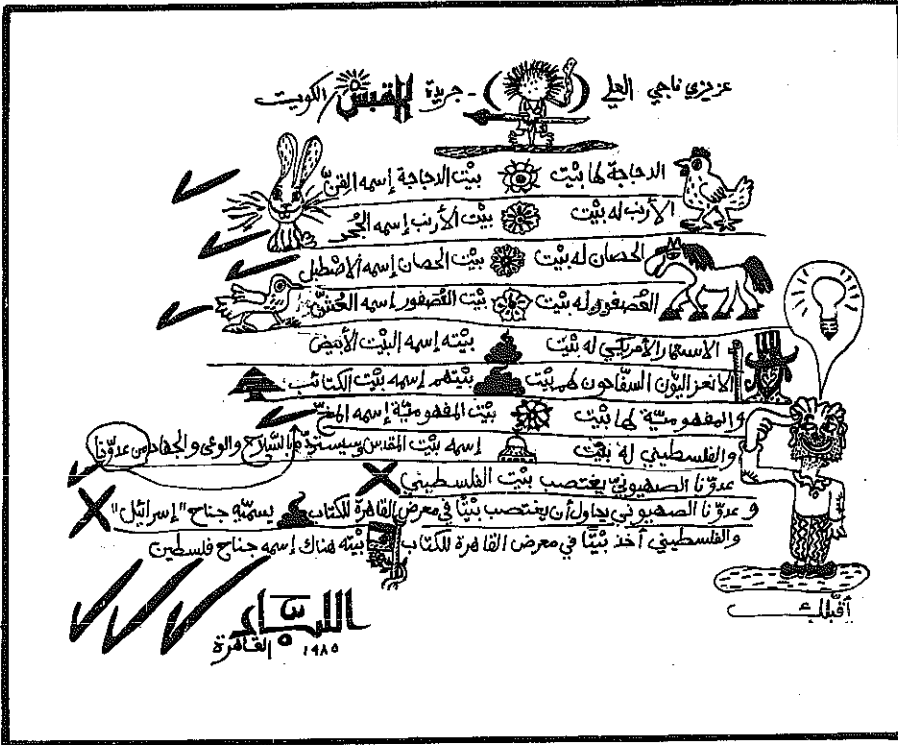 عزيزي ناجي العلي ( ) - جريدة القبس / الكويت
الدجاجة لها بيْت بيْت الدجاجة إسمه القنّ
الأرنب له بيْت بيْت الأرنب إسمه الجُحر
الحصان له بيْت بيْت الحصان إسمه الاصْطبل
العُصفور له بيْت بيْت العُصفور إسمه العُشّ
الاستعمار الأمريكي له بيْت بيْته إسمه البيْت الأبيض
الانعزاليّون السفّاحون لهم بيْت بيْتهم إسمه بيْت الكتائب
والمفهوميّة لها بيْت بيْت المفهوميّة إسمه المخّ
والفلسطيني له بيْت إسمه بيْت المقدس وسيستردّه بالسّلاح والوعى والجهاد من عدوّنا
عدوّنا الصهيونيّ يغتصب بيْت الفلسطيني
وعدوّنا الصهيوني يحاول أن يغتصب بيْتًا في معرض القاهرة للكتاب يسمّيه جناح "إسرائيل"
والفلسطيني أخذ بيْتًا في معرض القاهرة للكتاب بيْته هناك إسمه جناح فلسطين
أقبّلك
اللبّاد
القاهرة ١٩٨٥